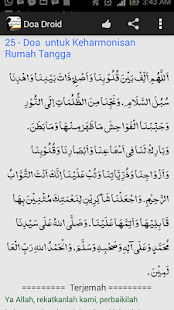 3:43 AM
Doa Droid
25 - Doa untuk Keharmonisan
Rumah Tangga
اَللّٰهُمَّ اَلِّفْ بَيْنَ قُلُوْبِنَا وَاَصْلِحْ ذَاتَ بَيْنِنَا وَاهْدِنَا
سُبُلَ السَّلاَمِ. وَنَجِّنَا مِنَ الظُّلُمَاتِ اِلَى النُّوْرِ
وَجَنِّبْنَا الْفَوَاحِشَ مَاظَهَرَ مِنْهَا وَمَابَطَنَ.
وَبَارِكْ لَنَا فِى اَسْمَاعِنَا وَاَبْصَارِنَا وَقُلُوْبِنَا
وَاَزْوَاجِنَا وَذُرِّيَّاتِنَا وَتُبْ عَلَيْنَا اِنَّكَ اَنْتَ التَّوَّابُ
الرَّحِيْمِ. وَاجْعَلْنَا شَاكِرِيْنَ لِنِعْمَتِكَ مُثْنِيْنَ بِهَا
قَابِلِيْهَا وَاَتِمَّهَا عَلَيْنَا. وَصَلَّى اللهُ عَلَى سَيِّدِنَا
مُحَمَّدٍ وَعَلَى آلِهِ وَصَحْبِهِ وَسَلَّمَ. وَالْحَمْدُ للهِ رَبِّ الْعَا
لَمِيْنَ.
========= Terjemah =========
Ya Allah, rekatkanlah kami, perbaikilah